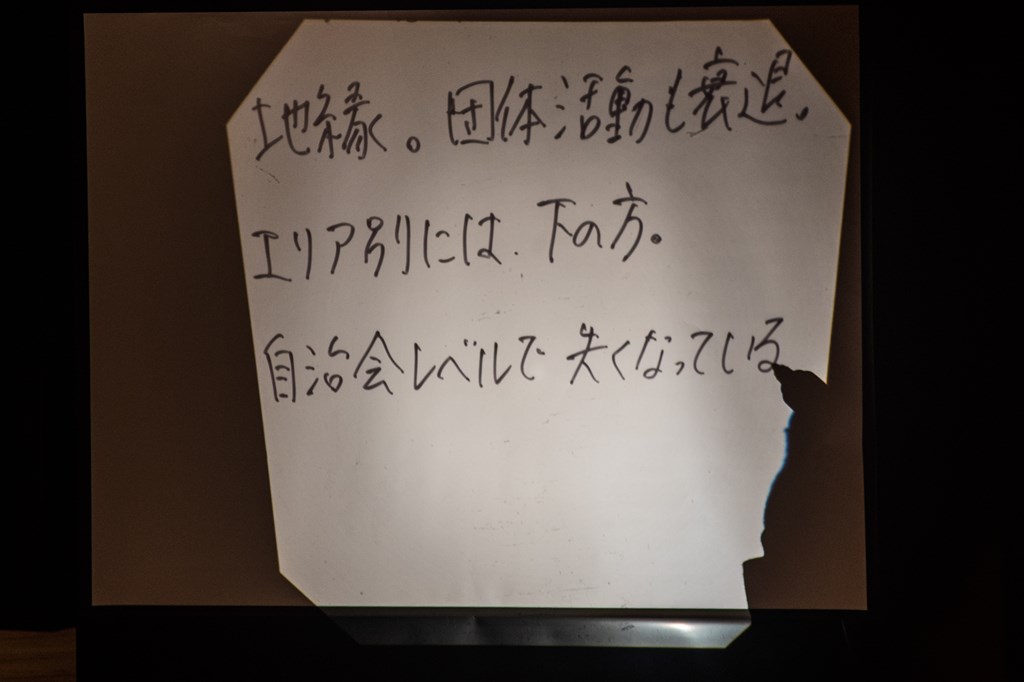 地縁。団体活動も衰退。
エリア別には、下の方。
自治会レベルで失くなっている